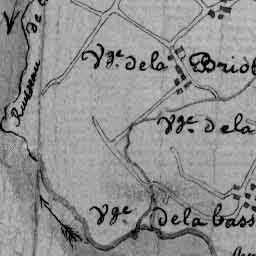 Ruisseau de
Vge. de la Briol
Vge. de la
Vge de la bass